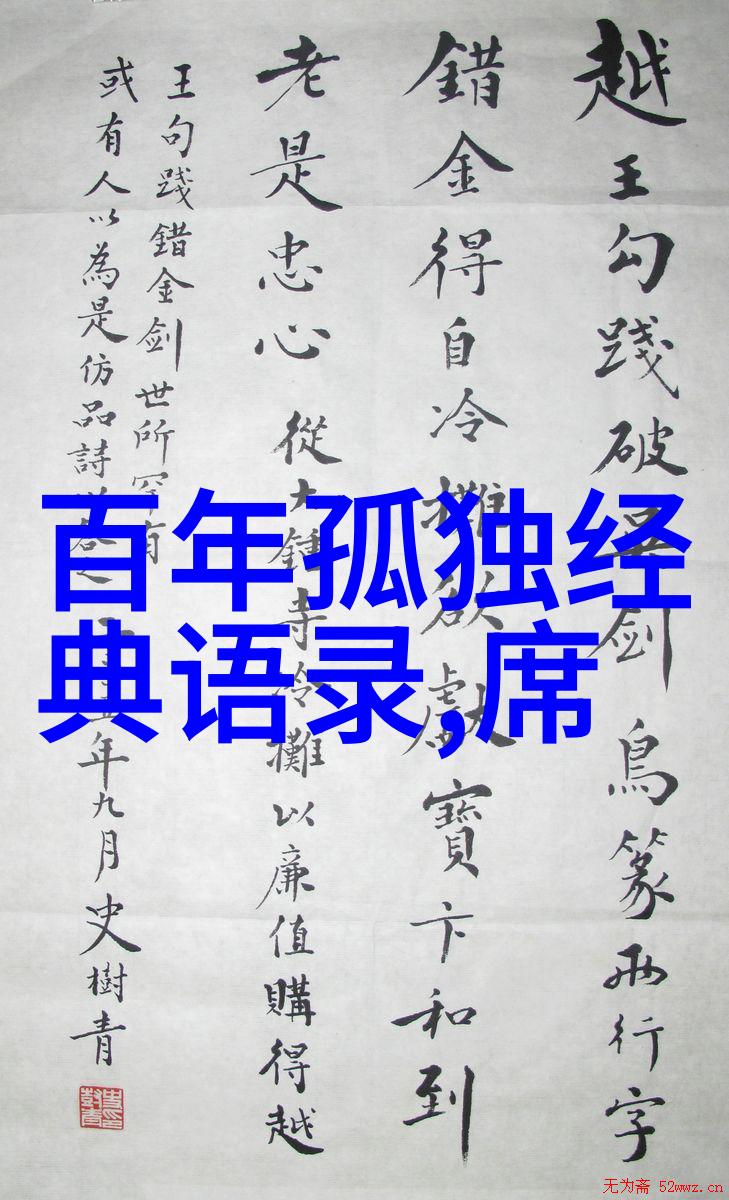 越王勾踐破吳剑鳥篆兩行字
錯金得自冷攤欲獻寶卞和到
老是忠心 從大鍾寺冷攤以廉值購得越
王句踐錯金剑世所罕有
或有人以為是仿品詩以之 五年九月史樹青
百年孤独经
典语录,席
无为斋 52wwz.cn